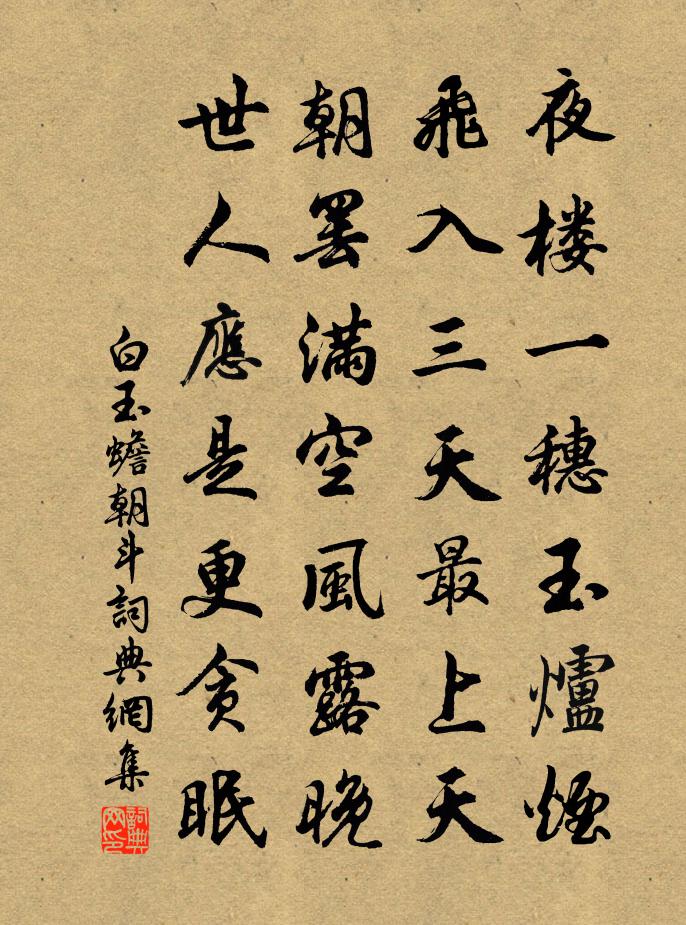 夜楼一穗玉爐煙
飛入三天最上天
朝罢滿空風露晚
世人應是更贪眠
白玉蟾朝斗詞典網集
詞典
网印